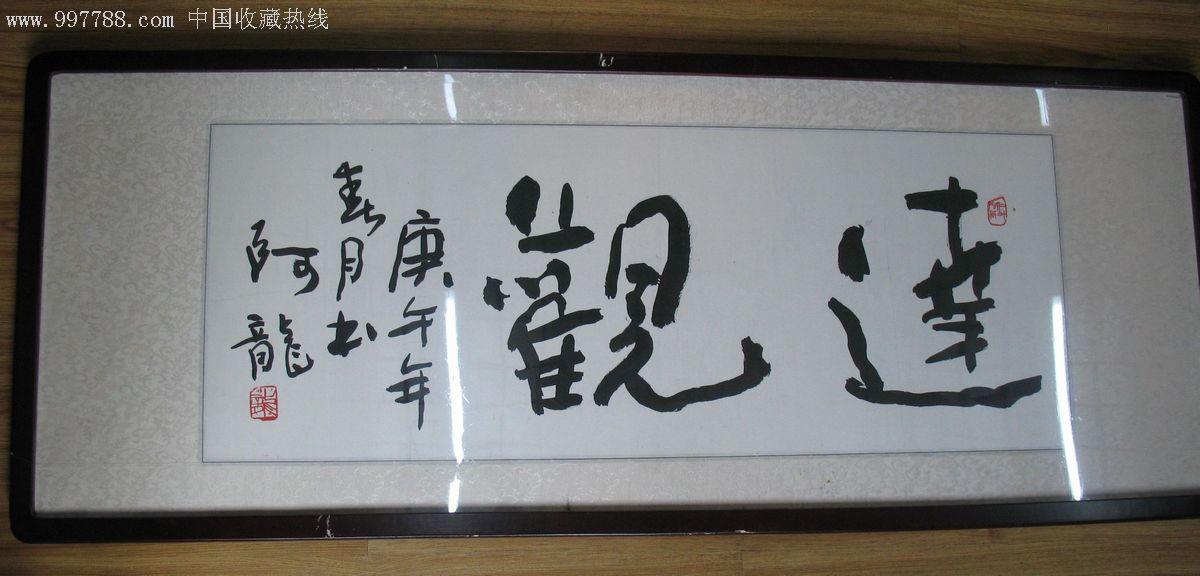 www.997788.com 中国收藏热线
達觀
庚午年
春月书
阿龍